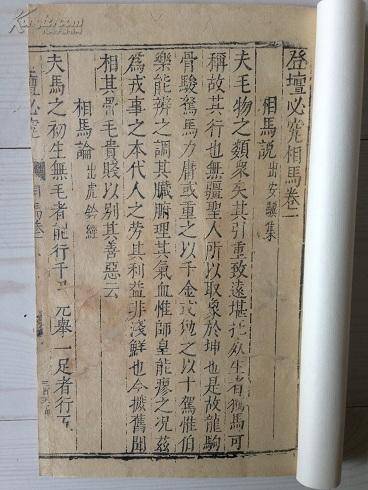 登壇必究相馬卷一
相馬說 出安驥集
夫毛物之類衆矣其引重致遠堪任 生者獨馬可
稱故其行也無疆聖人所以取象於坤也是故龍駒
骨駿駑馬力庸或重之以千金或 之以十駕惟伯
樂能辨之調其臟腑理其氣血惟師皇能療之况茲
爲戎事之本代人之勞其利益非淺鮮也今據舊聞
相其骨毛貴賤以别其善惡云
相馬論 出虎鈐經
夫馬之初生無毛者能行千里 元舉一足者行五
壇必究 相馬卷一